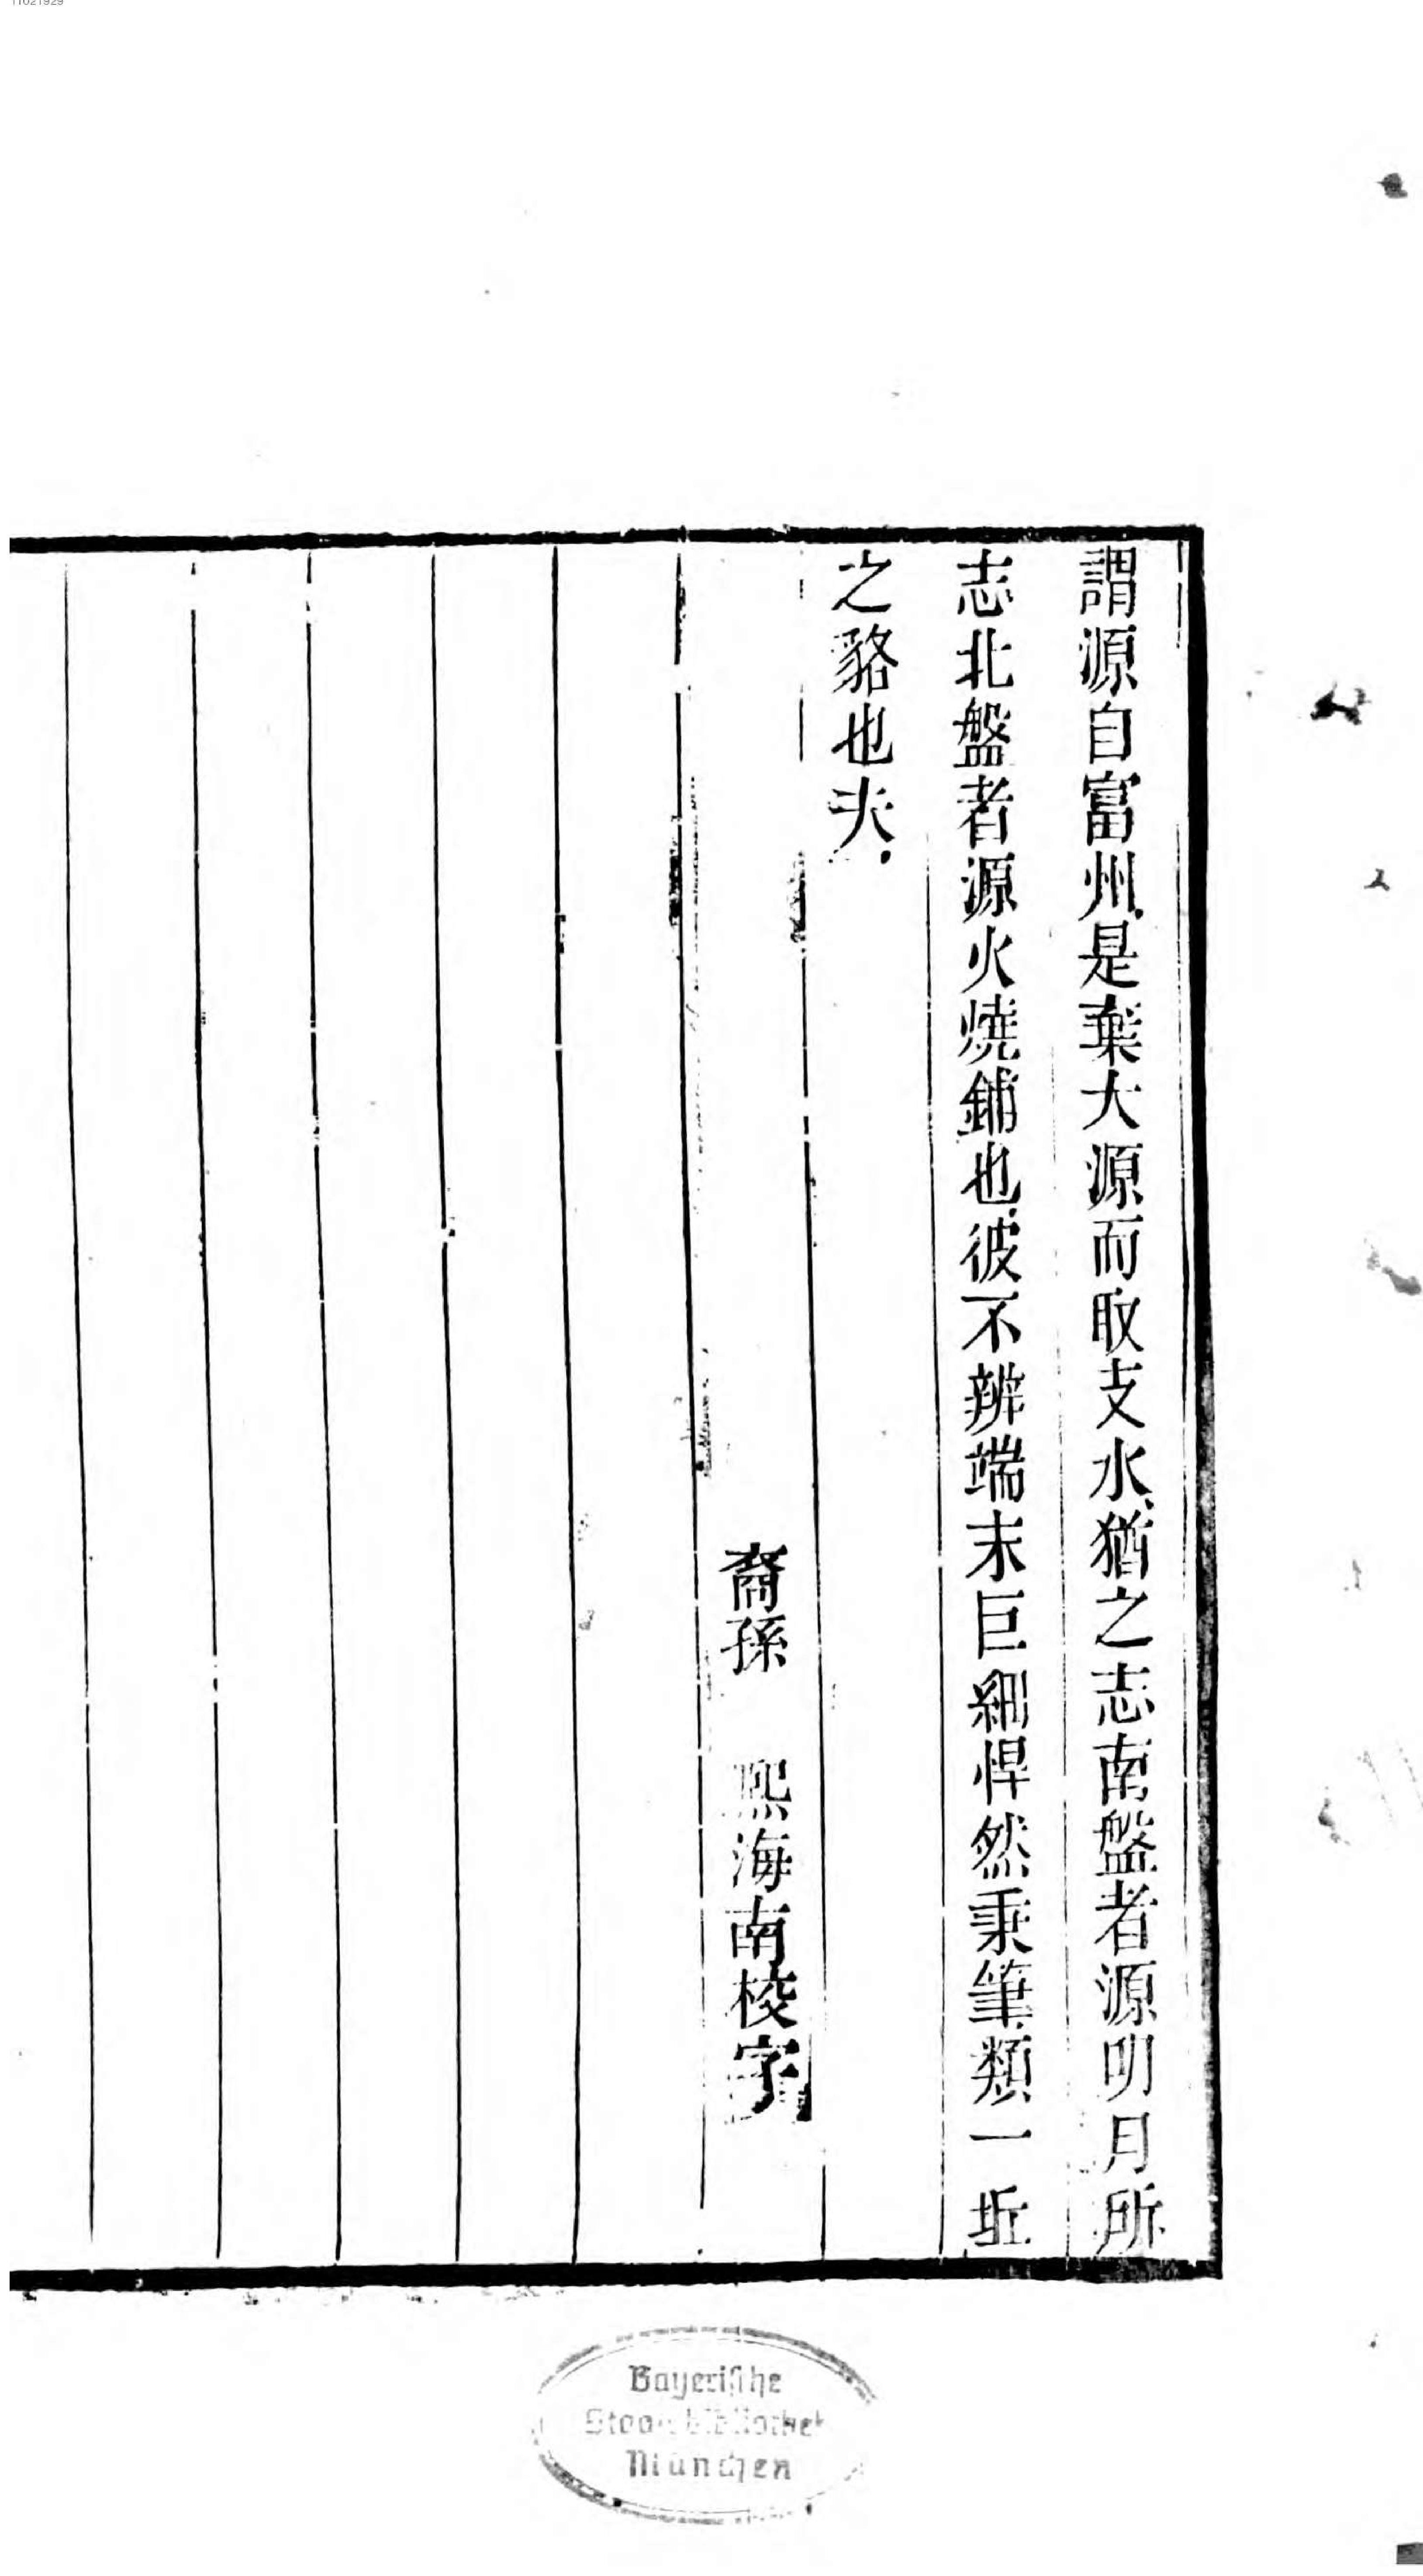 謂源自富州是葉大源而取支水猶之志南盤者源明月所
志北盤者源火燒鋪也彼不辨端末巨細悍然秉筆類一丘
之貉也夫
裔孫　熙海南校字
Bayerische
Staatsbibliothek
München
11021929